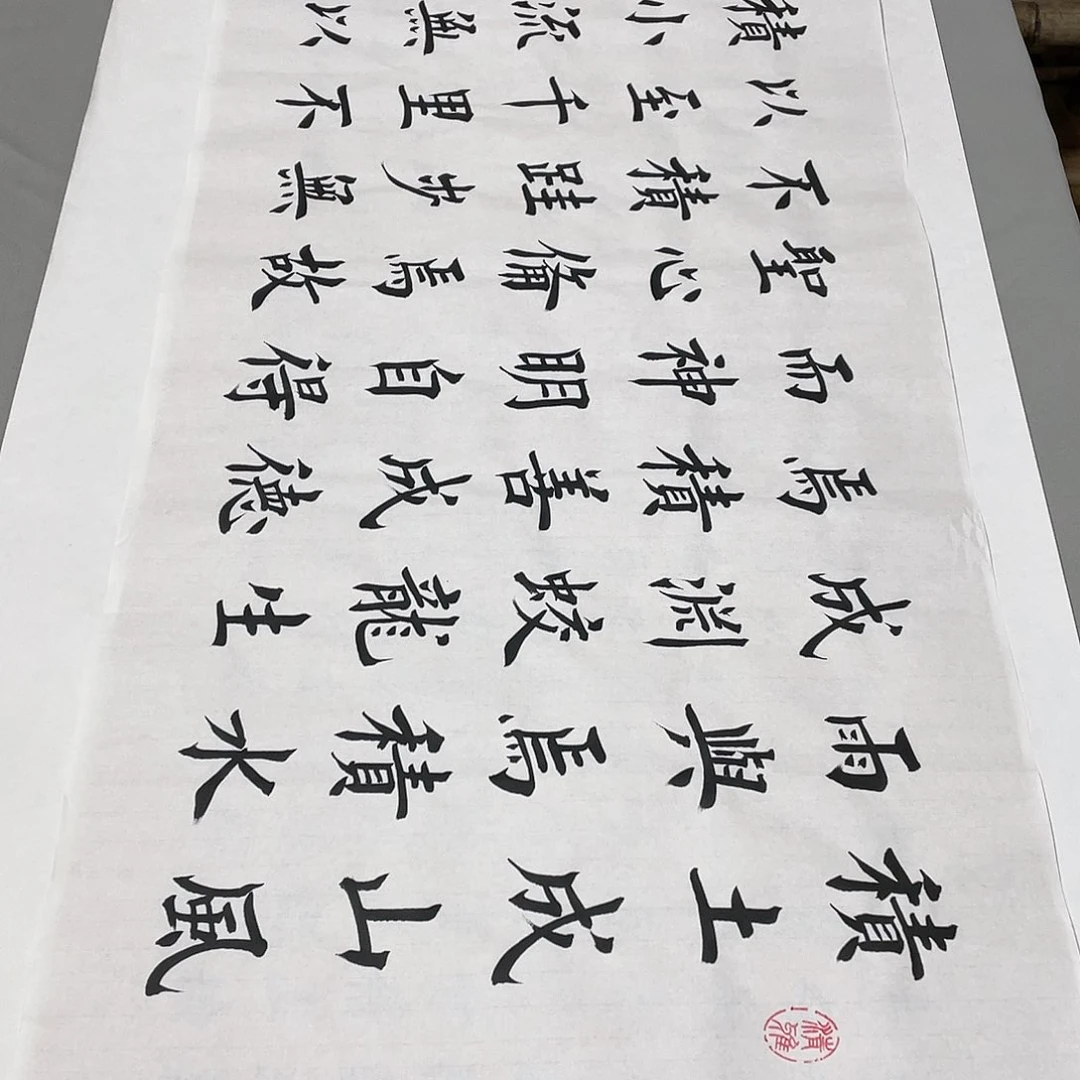 積土成山風
雨興焉積水
成淵蛟龍生
焉積善成德
而神明自得
聖心備焉故
不積跬步無
以至千里不
積小流無以